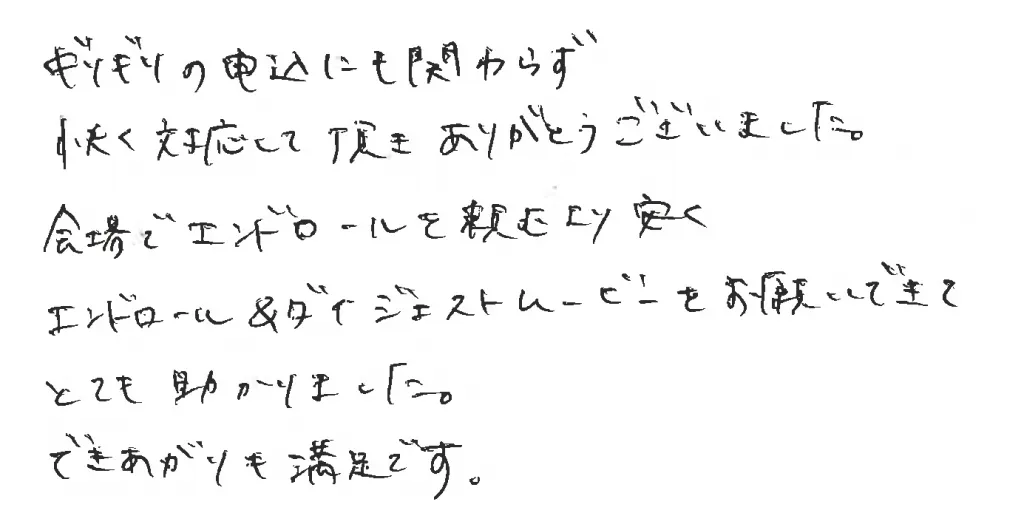 ギリギリの申込にも関わらず
快く対応して頂き ありがとうございました。
会場でエンドロールを頼むより 安く
エンドロール&ダイジェストムービーをお願いできて
とても 助かりました。
できあがりも 満足です。